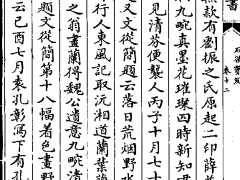 書
石渠寶笈
卷三
無款有劉振之氏原起二印薛
九畹真堇花璀璨四時新知君
見清芬便襲人丙子十月七十
文從簡題云落日荒烟野水
行人東風記取沅湘道蘭葉
之翁畫蘭得魏公遺意九畹清
題文從簡第十八幅着色畫野
云己酉七月袁孔彰寫下有孔